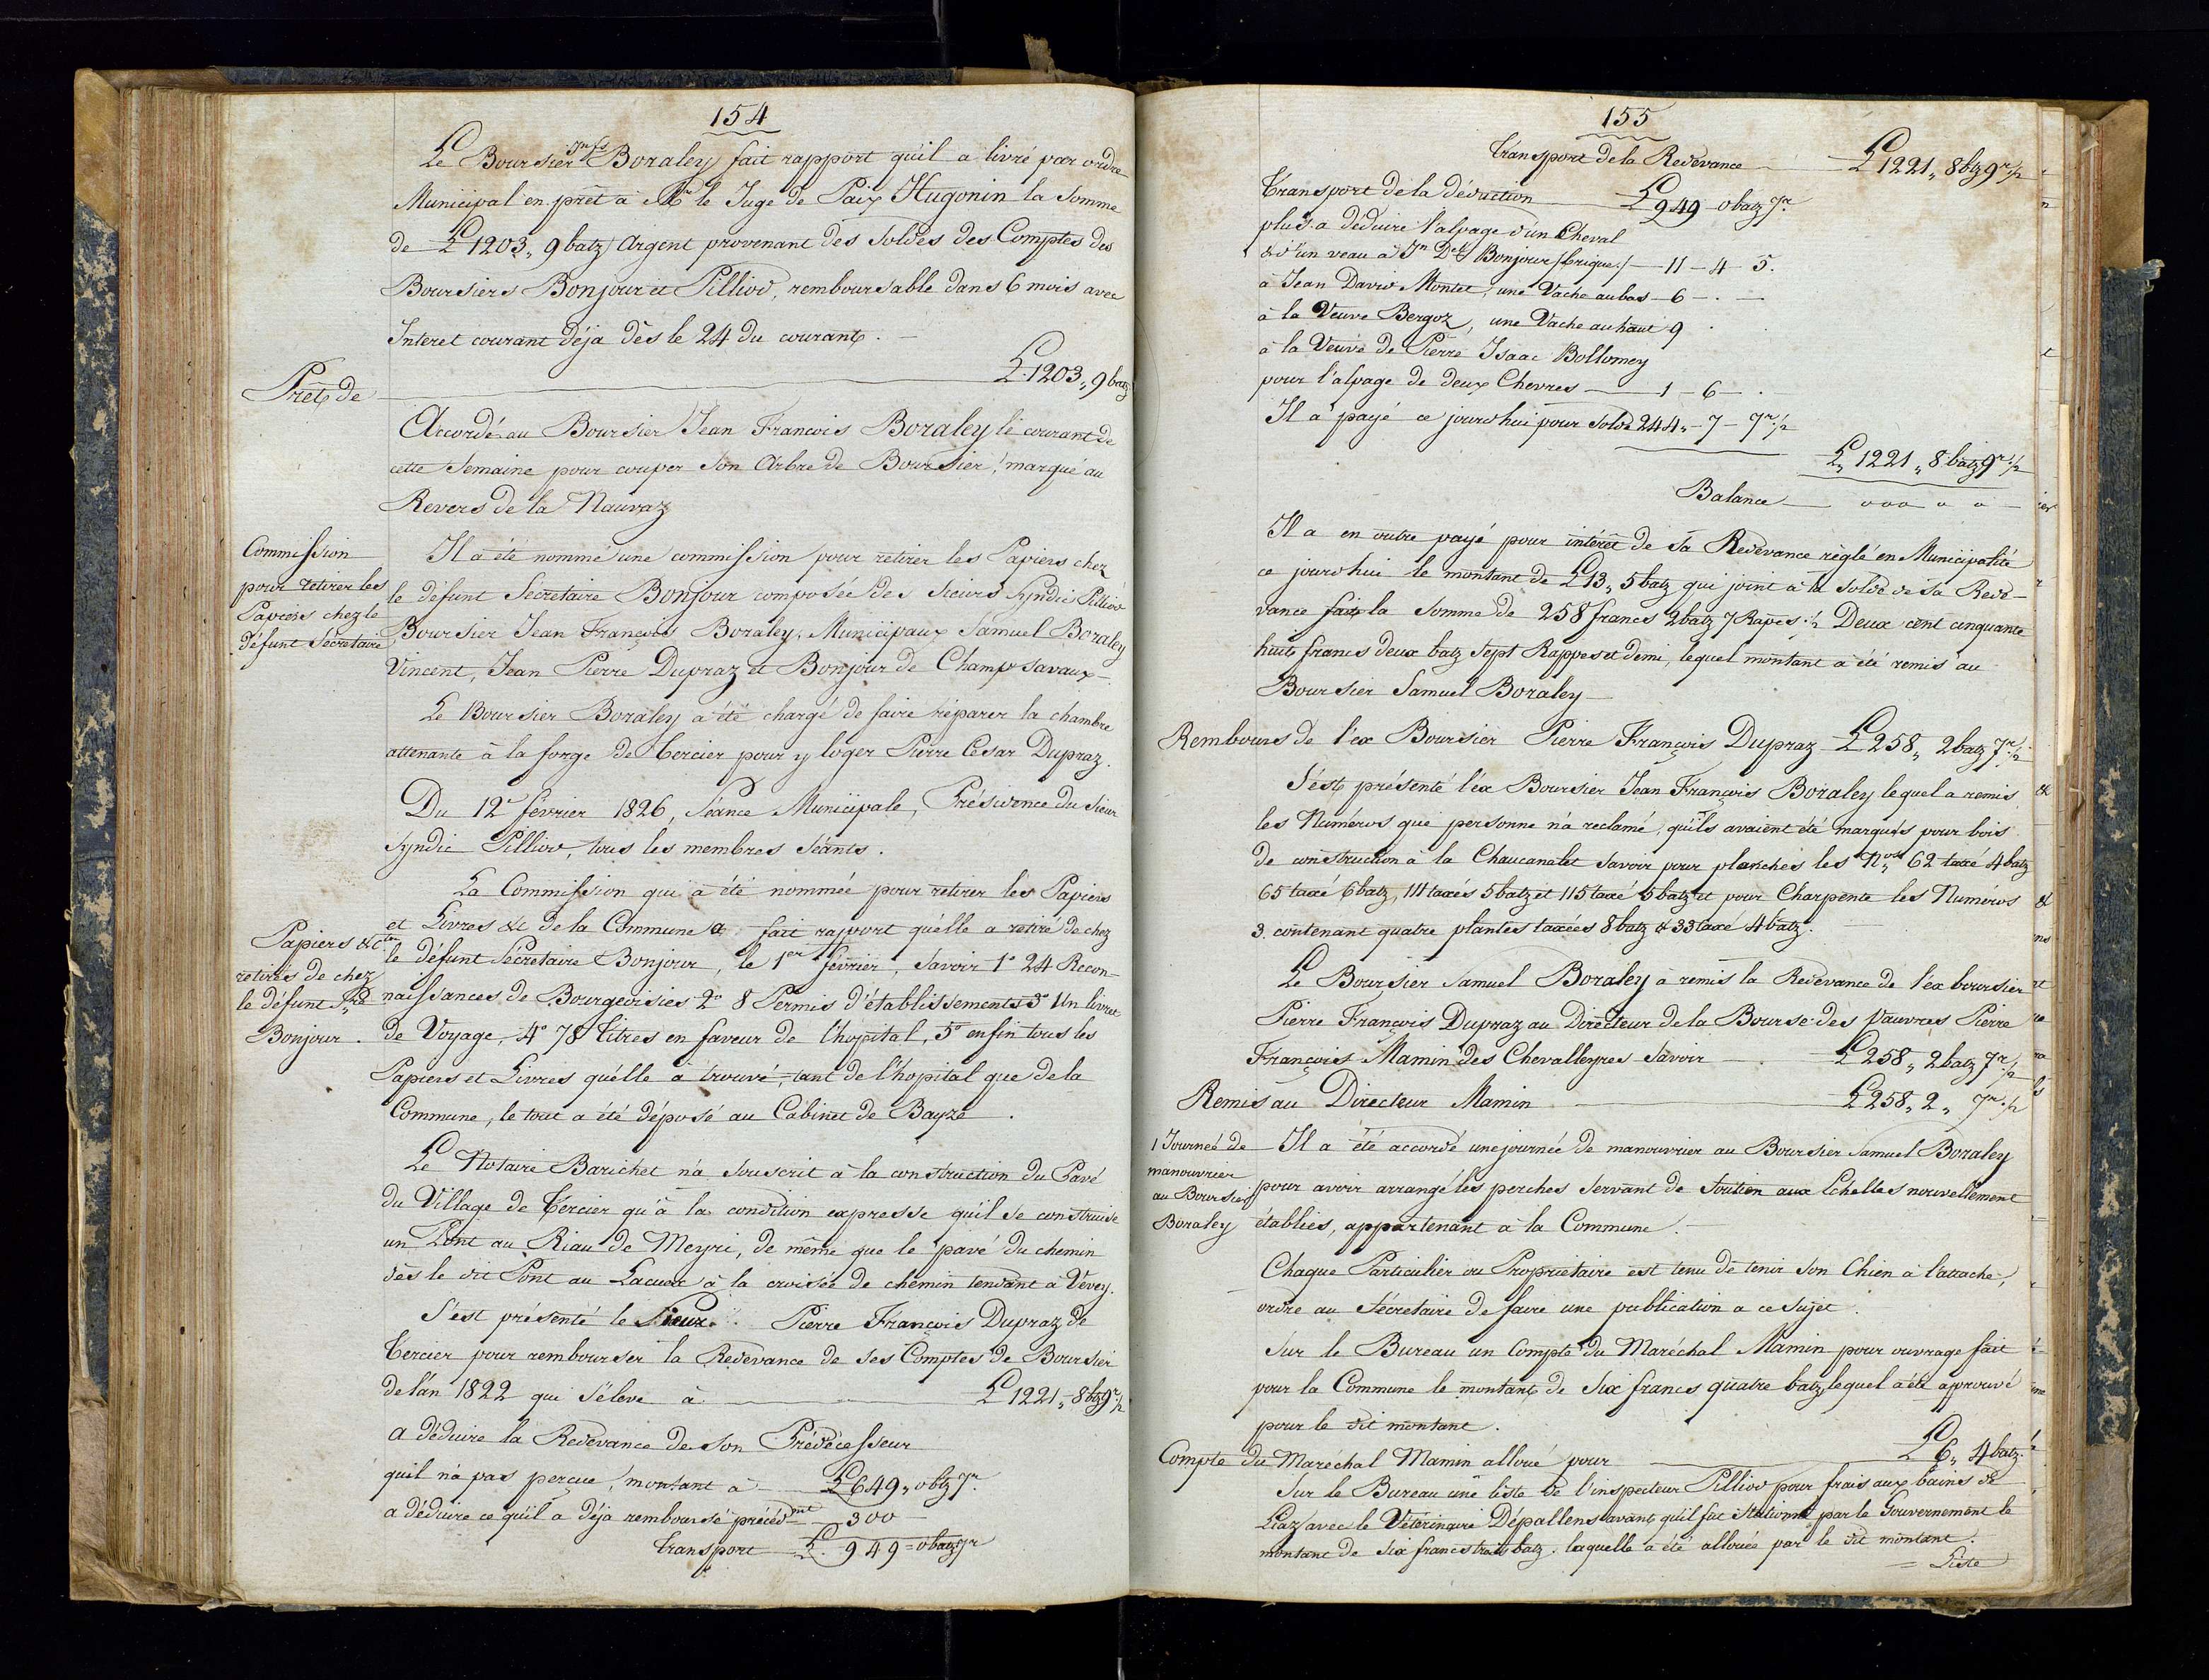 154
Le Boursier Jn fs Boraley fait rapport qu'il a livré par ordre
Municipal en prêt à Mr le Juge de Paix Hugonin la Somme
de L 1203,, 9 batz Argent provenant des Soldes des Comptes des
Boursiers Bonjour et Pilliod, remboursable dans 6 mois avec
Interet courant déja dès le 24 du courant. –
Prêt de — L. 1203,, 9 batz
Accordé au Boursier Jean Francois Boraley le courant de
cette Semaine pour couper Son Arbre de Boursier, marqué au
Revers de la Nauvaz
Commission
pour retirer les
Papiers chez le
défunt Secretaire
Il a été nommé une commission pour retirer les Papiers chez
le défunt Secretaire Bonjour composée des Sieurs Syndic Pilliod
Boursier Jean François Boraley, Municipaux Samuel Boraley
Vincent, Jean Pierre Dupraz et Bonjour de Champ-Savaux –
Le Boursier Boraley a été chargé de faire réparer la chambre
attenante à la forge de Tercier pour y loger Pierre Cesar Dupraz.
Du 12e février 1826, Séance Municipale, Présidence du Sieur
Syndic Pilliod, tous les membres Séants.
La Commission qui a été nommée pour retirer les Papiers
et Livres &c de la Commune a fait rapport qu'elle a retiré de chez
Papiers &c
retirés de chez
le défunt
Bonjour.
le défunt Sécretaire Bonjour, le 1er février, Savoir 1° 24 Recon-
naissances de Bourgeoisies 2° 8 Permis d'établissements 3° Un livret
de Voyage, 4° 78 titres en faveur de l'hopital, 5° enfin tous les
Papiers et Livres qu'elle a trouvé, tant de l'hopital que de la
Commune, le tout a été déposé au Cabinet de Bayze.
Le Notaire Barichet n'a Souscrit à la construction du Pavé
du Village de Tercier qu'à la condition expresse qu'il se construise
un Pont au Riau de Meyri, de même que le pavé du chemin
dès le dit Pont au Lacuex à la croisée de chemin tendant à Vevey.
S'est présenté le Sieur Pierre François Dupraz de
Tercier pour rembourser la Redevance de ses Comptes de Boursier
de l'an 1822 qui S'éleve à — L 1221,, 8 btz 9 r ½
a déduire la Redevance de Son Prédécesseur
qu'il n'a pas perçue, montant à — L 649,, 0 btz 7 r.
a déduire ce qu'il a déja remboursé précéd.mt — 300 –
Transport — L. 949 = 0 batz 7 r
155
Transport de la Redevance — L 1221,, 8 btz 9 r ½
Transport de la déduction — L 949 – 0 batz 7 r.
plus a deduire l'alpage d'un Cheval
& d'un veau à Jn Dd Bonjour (brique) — 11 – 4 – 5.
à Jean David Montet, une Vache au bas – 6 – . –
à la Veuve Bergoz, une Vache au haut 9 .
à la Veuve de Pierre Isaac Bollomey
pour l'alpage de deux Chevres — 1 – 6 – .
Il a payé ce jourd'hui pour Solde 244,, – 7 – 7 r. ½
L,, 1221,, 8 batz 9 r. ½
Balance — 000 0 0 –
Il a en outre payé pour intérêt de Sa Redevance règlé en Municipalité
ce jourd'hui le montant de L 13,, 5 batz qui joint à la Solde de Sa Rede-
vance fait la Somme de 258 francs 2 batz 7 Rapes. ½ Deux cent cinquante
huit francs deux batz Sept Rappes et demi, lequel montant a été remis au
Boursier Samuel Boraley –
Rembours de l'ex Boursier Pierre François Dupraz – L 258,, 2 batz 7 r. ½
S'est présenté l'ex Boursier Jean François Boraley lequel a remis
les Numéros que personne n'a reclamé, qu'ils avaient été marqués pour bois
de construction à la Chaucanalet Savoir pour planches les Nos 62 taxé 4 batz
65 taxé 6 batz, 111 taxés 5 batz et 115 taxé 5 batz et pour Charpente les Numéros
3. contenant quatre plantes taxées 8 batz & 33 taxé 4 batz.
Le Boursier Samuel Boraley à remis la Redevance de l'ex boursier
Pierre François Dupraz au Directeur de la Bourse des Pauvres Pierre
François Mamin des Chevalleyres Savoir — L 258,, 2 batz 7 r. ½
Remis au Directeur Mamin — L 258,, 2,, 7 r. ½
1 Journeé de
manouvrier
au Boursier
Boraley
Il a été accordé une journée de manouvrier au Boursier Samuel Boraley
pour avoir arrangé les perches Servant de Soutien aux Echelles nouvellement
établies, appartenant à la Commune. –
Chaque Particulier ou Proprietaire est tenu de tenir Son Chien à l'attache,
ordre au Sécretaire de faire une publication a ce Sujet.
Sur le Bureau un Compte du Maréchal Mamin pour ouvrage fait
pour la Commune le montant de Six francs quatre batz, lequel a été approuvé
pour le dit montant.
Compte du Maréchal Mamin alloué pour — L 6,, 4 batz.
Sur le Bureau une liste de l'inspecteur Pilliod pour frais aux bains de
Liaz avec le Vétérinaire Dépallens avant qu'il fut Stationné par le Gouvernement le
montant de Six francs trois batz. laquelle a été allouée par le dit montant.
= Liste